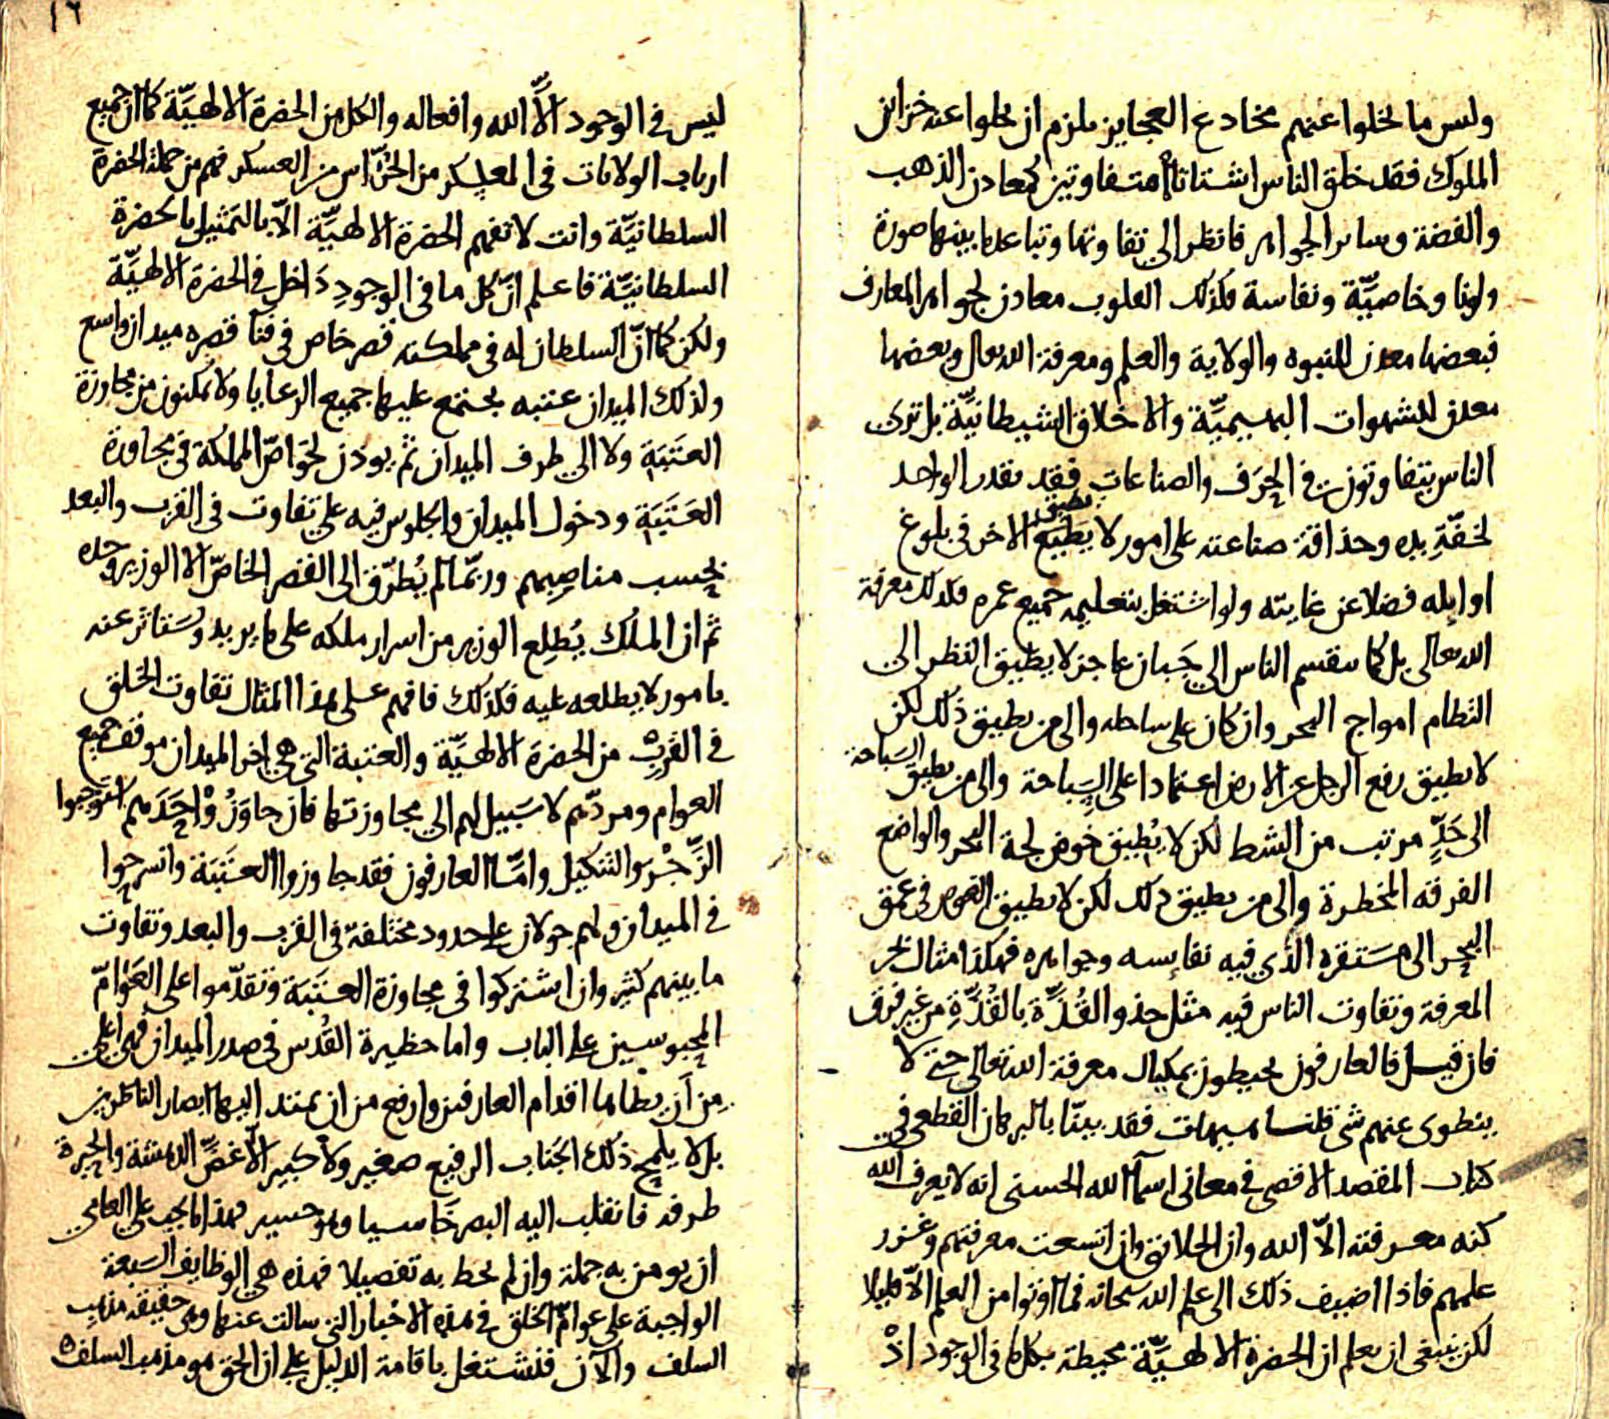 وليس ما يخلوا عنهم مخادع العجايز يلزم ان يخلوا عنه خزائن
الملوك فقد خلق الناس اشتاتا متفاوتين كمعادن الذهب
والفضة وساير الجواهر فانظر الى تفاوتها وتباعد ما بينها صورة
ولونا وخاصيّة ونفاسة فكذلك القلوب معادن لجواهر المعارف
فبعضها معدن للنبوه والولاية والعلم ومعرفة الله تعالى وبعضها
معدن للشهوات البهيميّة والاخلاق الشيطانيّة بل ترى
الناس يتفاوتون في الحِرَف والصناعات فقد يقدر الواحد
لخفّةِ يده وحذاقة صناعته على امور لا يطمع الاخر في بلوغ
اوايله فضلا عن غايته ولو اشتغل بتعليمه جميع عمره فكذلك معرفة
الله تعالى بل كما ينقسم الناس الى جَبان عاجز لا يطيق النظر الى
التطام امواج البحر وان كان على ساحله والى من يطيق ذلك لكن
لا يطيق رفع الرجل عن الارض اعتمادا على السِّباحة والى من يطيق السباحة
الى حَدٍّ مرتب من الشط لكن لا يُطيق خوض لجة البحر والمواضع
الغرقه المخطرة والى من يطيق ذلك لكن لا يطيق الغوص في عمق
البحر الى مستقره الذي فيه نفايسه وجواهره فهكذا مثال بحر
المعرفة وتفاوت الناس فيه مثل حذو القُذَّة بالقُذَّةِ من غير فرق
فان قيل فالعارفون يحيطون بمكيال معرفة الله تعالى حتى لا
ينطوى عنهم شئ قلنا هيهات فقد بينّا بالبرهان القطعى في
كتاب المقصد الاقصى في معاني اسماء الله الحسنى انه لا يعرف الله
كنه معرفته الاّ الله وان الخلائق وان اتسعت معرفتهم وغزر
علمهم فاذا اضيف ذلك الى علم الله سبحانه فما اوتوا من العلم الاّ قليلا
لكن ينبغي ان يعلم ان الحضرة الالهيّة محيطة بكل ما في الوجود اذْ
١٦
ليس في الوجود الاَّ الله وافعاله والكل من الحضرة الالهيّة كما ان جميع
ارباب الولايات في المعسكر من الحُرّاس من العسكر فهم من جملة الحضرة
السلطانيّة وانت لا تفهم الحضرة الالهيّة الاّ بالتمثيل بالحضرة
السلطانيّة فاعلم انّ كل ما في الوجودِ دَاخل في الحضرة الالهيّة
ولكن كما انّ السلطان له في مملكته قصر خاص في فنآ قصره ميدان واسع
ولذلك الميدان عتبه يجتمع عليها جميع الرعايا ولا يمكنون من مجاوزة
العَتَبَةِ ولا الى طرف الميدان ثم يوذن لخواصّ المملكة في مجاوزة
العَتَبَةِ ودخول الميدان والجلوس فيه على تفاوت في القرب والبعد
بحسب مناصبهم وربمّا لم يُطرّق الى القصر الخاصّ الا الوزير وحده
ثم ان الملك يُطلِع الوزير من اسرار ملكه على ما يريد ويستاثر عنه
بامور لا يطلعه عليه فكذلك فافهم على هذا المثال تفاوت الخلق
في القربِ من الحضرة الالهيّة والعتبة التي هي اخر الميدان موقف جميع
العوام ومردّهم لا سَبيل لهم الى مجاوزتها فان جاوَزَ واحدهم استوجبوا
الزَّجْر والتنكيل وامّا العارفون فقد جاوزوا العَتَبَة وانسرحوا
في الميدان ولهم جولان على حدود مختلفة في القرب والبعد وتفاوت
ما بينهم كثير وان اشتركوا في مجاوزة العَتَبَة وتقدّموا على العَوامّ
المحبوسين على الباب واما حظيرة القُدس في صدر الميدان فهي اعلى
مِن اَن يطاها اقدام العارفين وارفع من ان يمتد اليها ابصار الناظرين
بل لا يلمح ذلك الجَناب الرفيع صغير ولا كبير الاّ غضّ الدهشة والحيرة
طرفه فانقلب اليه البصر خَاسيا وهو حسير فهذا ما يجب على العامي
ان يومن به جملة وان لم يحط به تفصيلا فهذه هي الوظايف السَبعة
الواجبة على عوامّ الخلق في هذه الاخبار التي سالت عنها وهى حقيقة مذهب
السلف والآن فنشتغل باقامة الدليل على ان الحق هو مذهب السلف